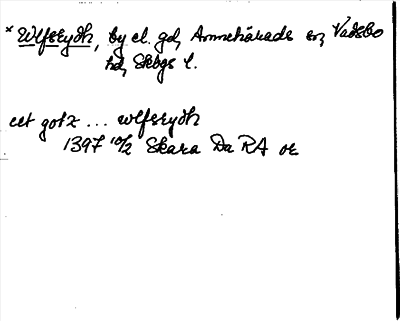 * Wlfsrydh, by el. gd, Amnehärads sn, Vadsbo
hd, Skbgs l.
ett gotz ... wlfsrydh
1397 10/2 Skara Da RA or